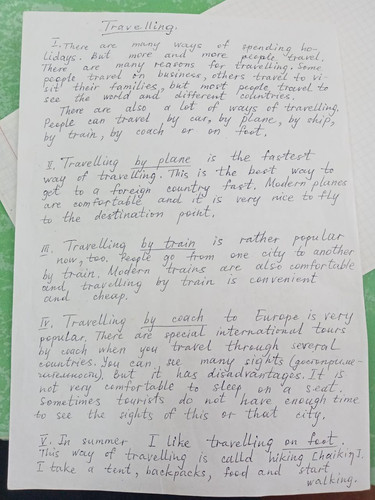 Travelling.
I. There are many ways of spending ho-
lidays. But more and more people travel.
There are many reasons for travelling. Some
people travel on business, others travel to vi-
sit their families, but most people travel to
see the world and different countries.
There are also a lot of ways of travelling.
People can travel by car, by plane, by ship,
by train, by coach or on foot.
II. Travelling by plane is the fastest
way of travelling. This is the best way to
get to a foreign country fast. Modern planes
are comfortable and it is very nice to fly
to the destination point.
III. Travelling by train is rather popular
now, too. People go from one city to another
by train. Modern trains are also comfortable
and, travelling by train is convenient
and cheap.
IV. Travelling by coach to Europe is very
popular. There are special international tours
by coach when you travel through several
countries. You can see many sights (достоприме-
чательности). But it has disadvantages. It is
not very comfortable to sleep on a seat.
Sometimes tourists do not have enough time
to see the sights of this or that city.
V. In summer I like travelling on foot.
This way of travelling is called hiking [haikin].
I take a tent, backpacks, food and start
walking.